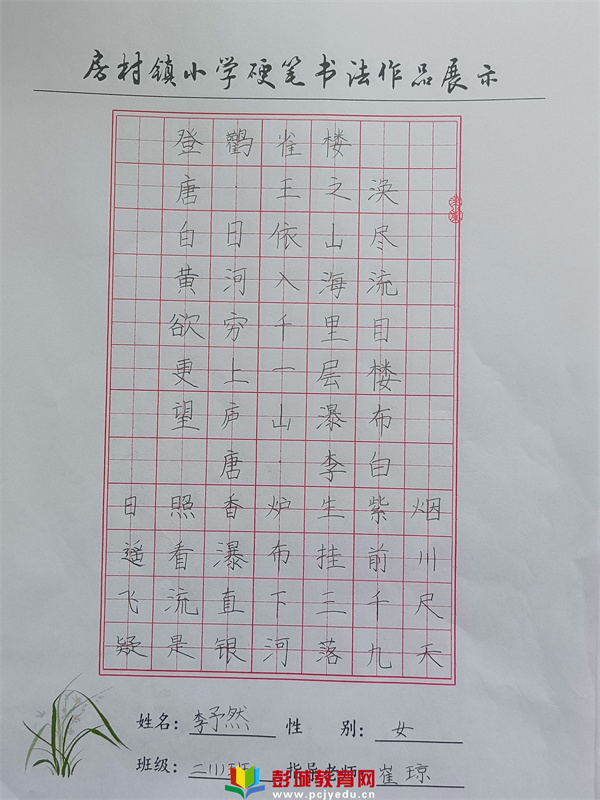 房村镇小学硬笔书法作品展示
登鹳雀楼
唐·王之涣
白日依山尽
黄河入海流
欲穷千里目
更上一层楼
望庐山瀑布
唐·李白
日照香炉生紫烟
遥看瀑布挂前川
飞流直下三千尺
疑是银河落九天
姓名：李予然 性 别：女
班级：二(1)班 指导老师：崔琼
彭城教育网
www.pcjyedu.cn